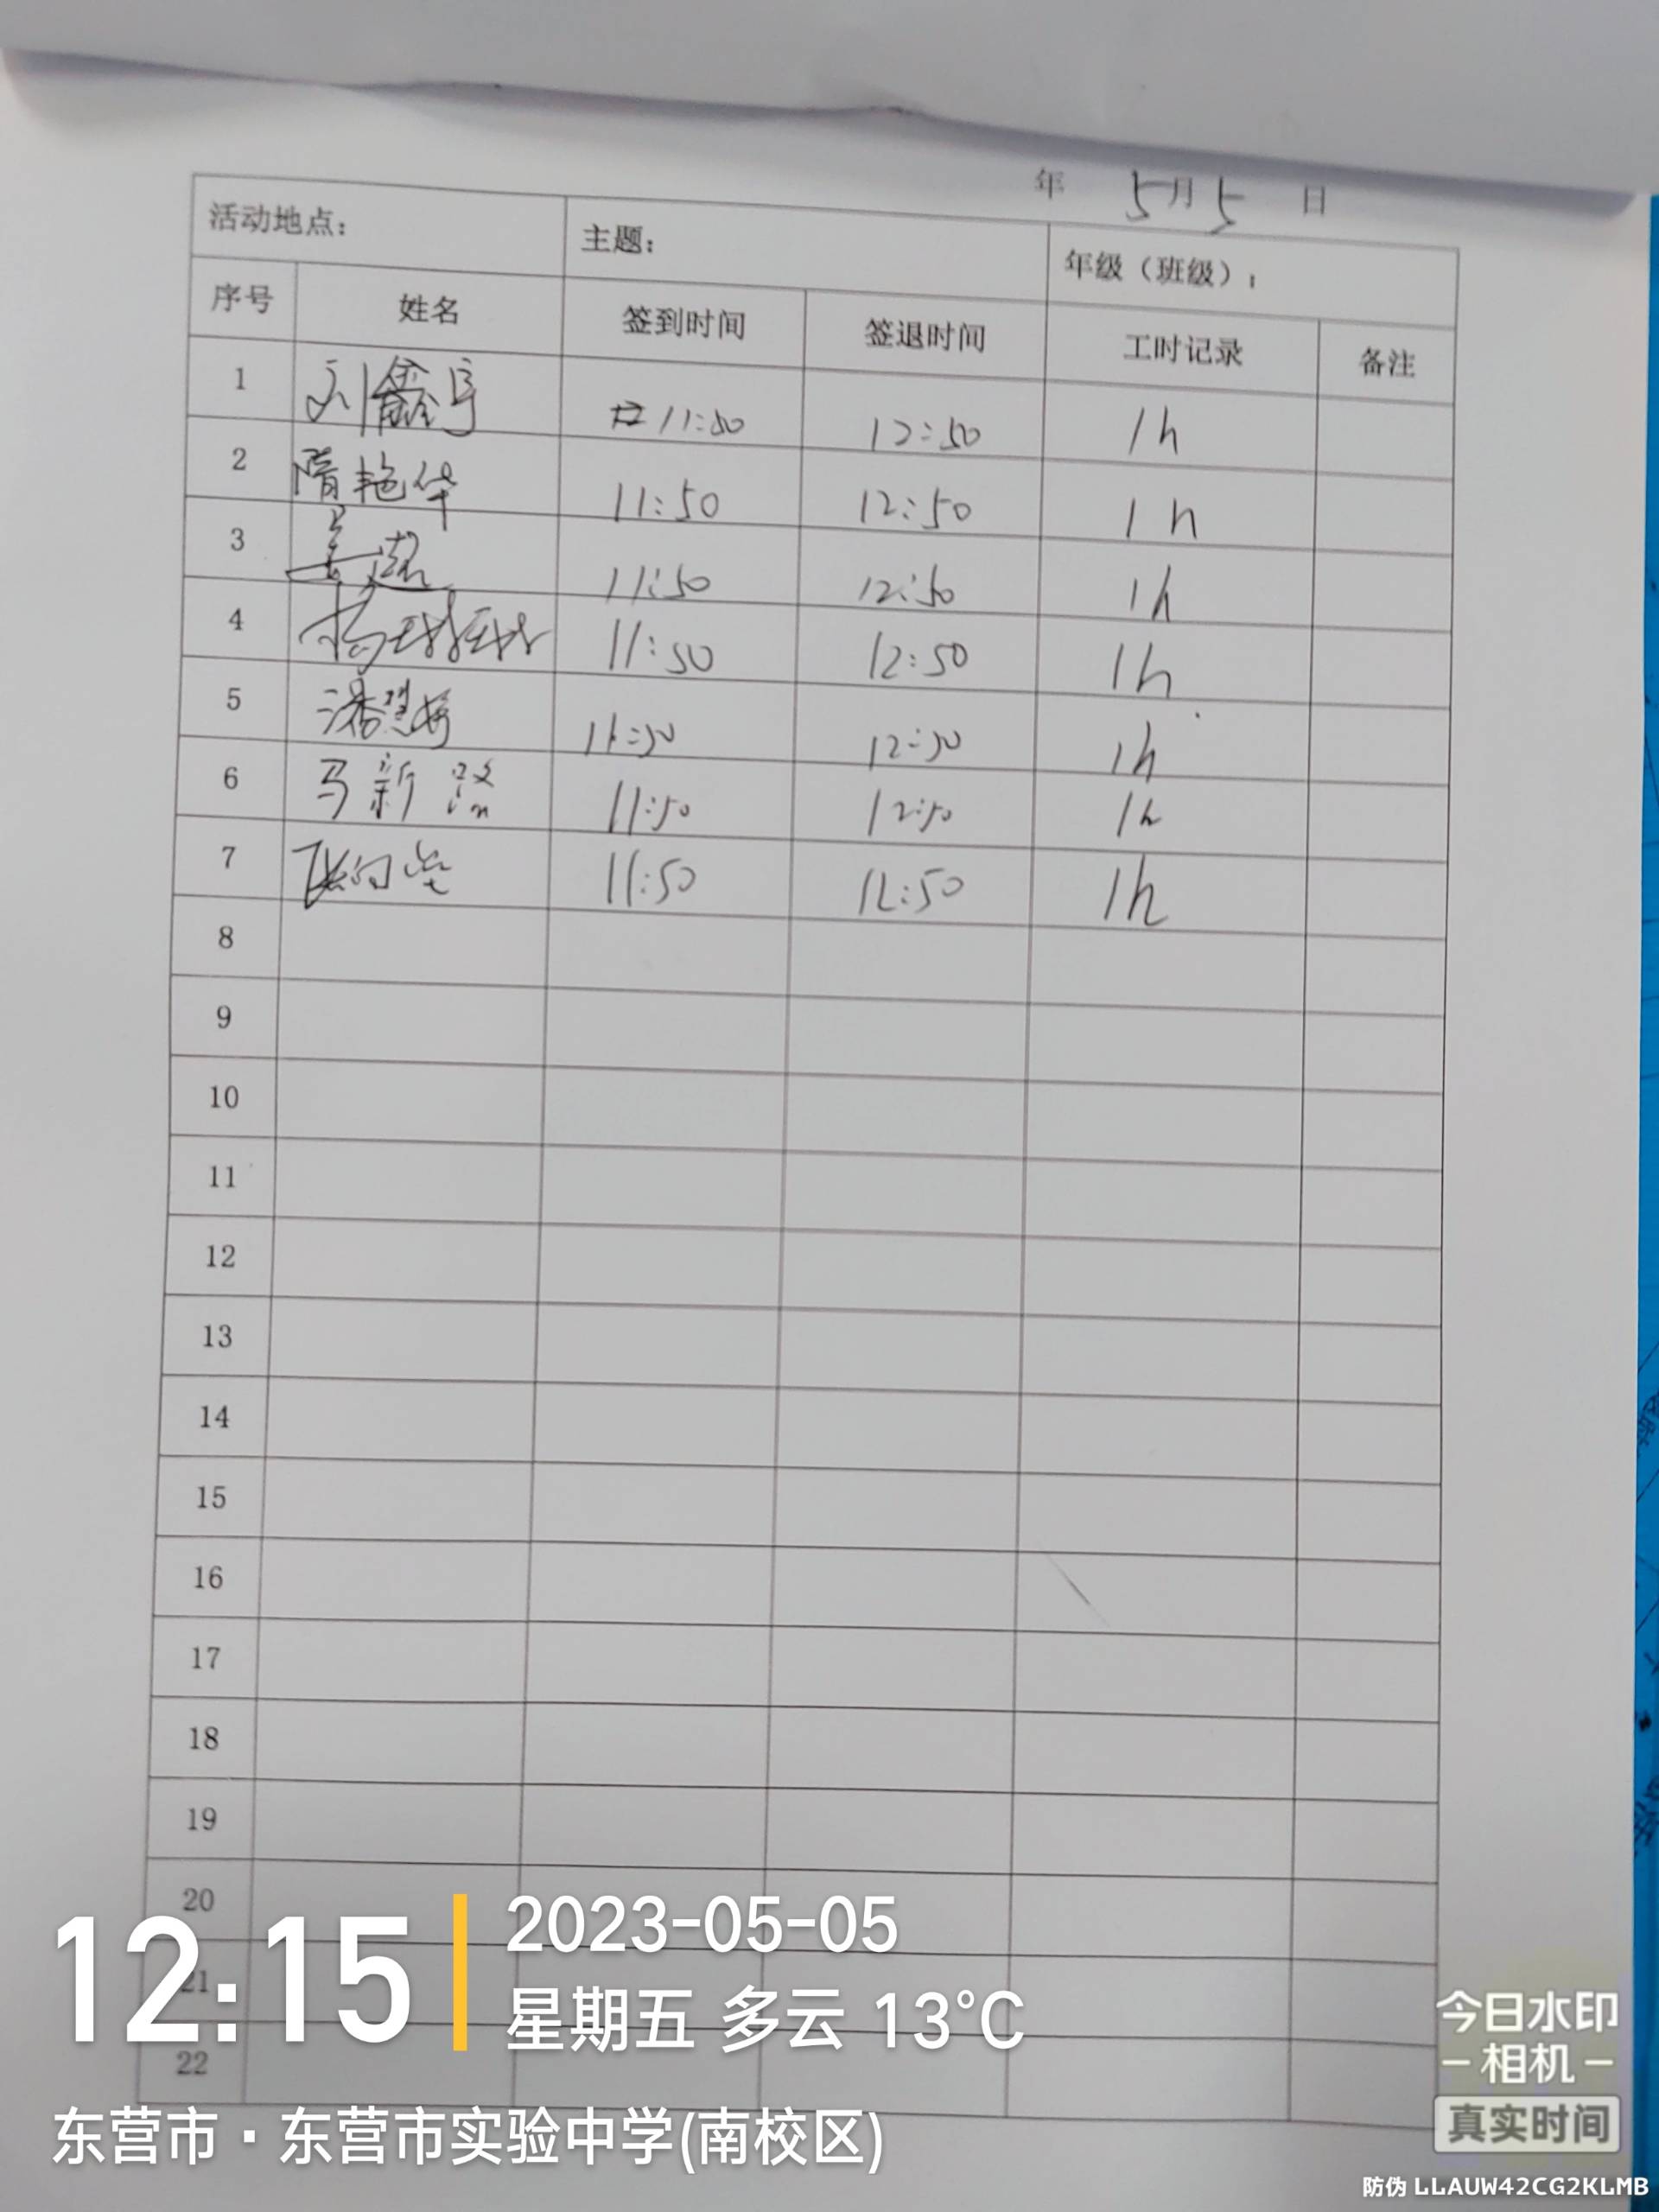 年 5月5 日
活动地点： 主题： 年级（班级）：
序号 姓名 签到时间 签退时间 工时记录 备注
1 刘鑫宇 11:50 12:50 1h
2 隋艳华 11:50 12:50 1h
3 姜超 11:50 12:50 1h
4 杨球球 11:50 12:50 1h
5 潘慧婷 11:50 12:50 1h
6 马新 11:50 12:50 1h
7 11:50 12:50 1h
8
9
10
11
12
13
14
15
16
17
18
19
20
21
22
12:15
2023-05-05
星期五 多云 13°C
东营市·东营市实验中学(南校区)
今日水印
相机
真实时间
防伪 LLAUW42CG2KLMB